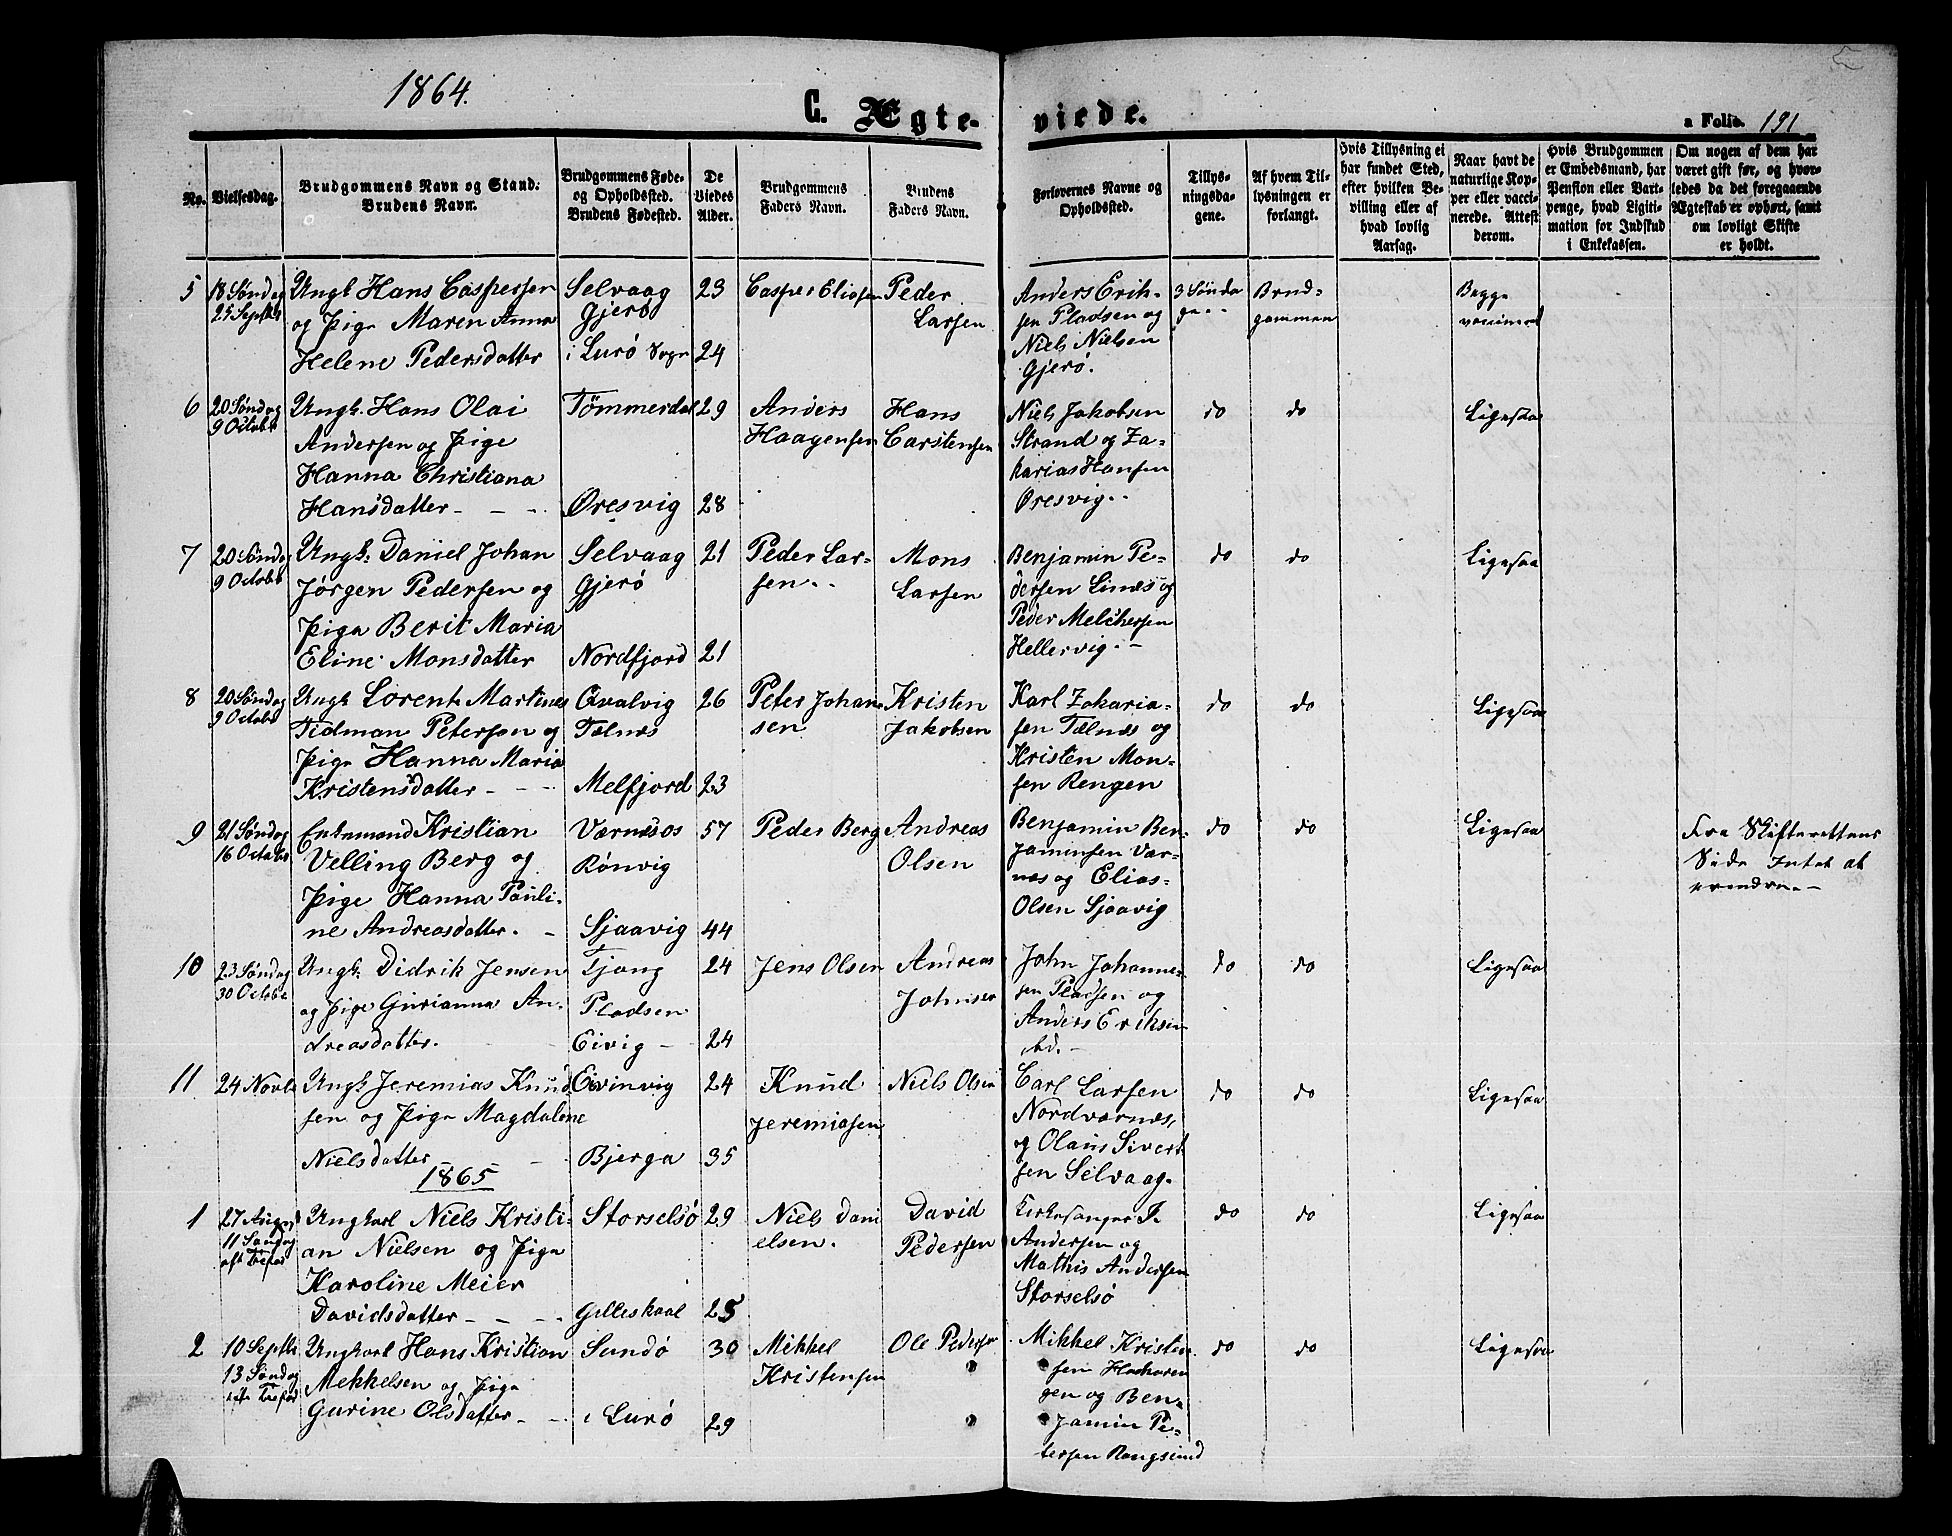 1864.
C. Ægte-
viede.
a Folio. 191
No.
Vielsesdag.
Brudgommens Navn og Stand.
Brudens Navn.
Brudgommens Føde-
og Opholdssted.
Brudens Fødested.
De
Viedes
Alder.
Brudgommens
Faders Navn.
Brudens
Faders Navn.
Forlovernes Navne og
Opholdssted.
Tillys-
ningsda-
gene.
Af hvem Til-
lysningen er
forlangt.
Hvis Tillysning ei
har fundet Sted,
efter hvilken Be-
villing eller af
hvad lovlig
Aarsag.
Naar havt de
naturlige Kop-
per eller vacci-
nerede. Attest
derom.
Hvis Brudgommen
er Embedsmand, har
Pension eller Vart-
penge, hvad Ligiti-
mation for Indskud
i Enkekassen.
Om nogen af dem har
været gift før, og hvor-
ledes da det foregaaende
Ægteskab er ophørt, samt
om lovligt Skifte
er holdt.
5
18 Søndag
25 Septbr
Ungk Hans Caspersen
og Pige Maren Anna
Helene Pedersdatter
Selvaag
Gjerø
i Lurø Sogn
23
24
Casper Eliasen
Peder
Larsen
Anders Erik-
sen Pladsen og
Niels Nielsen
Gjerø.
3 Sønda
ge..
Brud-
gommen
Begge
vaccineret
6
20 Søndag
9 Octobr
Ungk. Hans Olai
Andersen og Pige
Hanna Christiana
Hansdatter - - -
Tømmerdal
Øresvig
29
28
Anders
Haagensen
Hans
Carstensen
Niels Jakobsen
Strand og Za-
karias Hansen
Øresvig..
do
do
Ligesaa
7
20 Søndag
9 Octobr
Ungk. Daniel Johan
Jørgen Pedersen og
Pige Berit Maria
Eline Monsdatter
Selvaag
Gjerø
Nordfjord
21
21
Peder Lar-
sen..
Mons
Larsen
Benjamin Pe-
dersen Linæs og
Peder Melchersen
Hellervig.-
do
do
Ligesaa
8
20 Søndag
9 Octobr
Ungk Lorents Martines
Tidman Petersen og
Pige Hanna Maria
Kristensdatter - - -
Qvalvig
Tælnæs
Melfjord
26
23
Peter Johan-
sen
Kristen
Jakobsen
Karl Zakaria-
sen Tælnæs og
Kristen Mon-
sen Rengen
do
do
Ligesaa
9
21 Søndag
16 Octobr
Enkemand Kristian
Velling Berg og
Pige Hanna Pauli-
ne Andreasdatter. -
Værnæsos
Rønvig
Sjaavig
57
44
Peder Berg
Andreas
Olsen
Benjamin Ben-
jaminsen Vær-
næs og Elias-
Olsen Sjaavig
do
do
Ligesaa
Fra Skifterettens
Side Intet at
erindre.-
10
23 Søndag
30 Octobr
Ungk. Didrik Jensen
og Pige Gurianna An-
dreasdatter. -
Tjong
Pladsen
Eivig -
24
24
Jens Olsen
Andreas
Johnsen
John Johanne-
sen Pladsen og
Anders Eriksen
ibd. -
do
do
Ligesaa
11
24 Novbr
Ungk Jeremias Knud-
sen og Pige Magdalene
Nielsdatter - - -
Eivinvig
Bjerga
24
35
Knud
Jeremiasen
Niels Olsen
Carl Larsen
Nordværnæs,
og Olaus Sivert
sen Selvaag.
do
do
Ligesaa
1865
1
27 August
11 Søndag
eft Trefor
Ungkarl Niels Kristi-
an Nielsen og Pige
Karoline Meier
Davidsdatter - - - -
Storselsø
Gilleskaal
29
25
Niels Dani
elsen.
David
Pedersen
Kirkesanger J.
Andersen og
Mathis Andersen
Storselsø
do
do
Ligesaa
2
10 Septbr
13 Søndag
eft Trefor
Ungkarl Hans Kristian
Mekkelsen og Pige
Gurine Olsdatter - -
Sundø
i Lurø
30
29
Mikkel
Kristensen
Ole Pedersen
Mikkel Kristen
sen
gen og Ben-
jamin Pe-
tersen Rangsund
do
do
Ligesaa